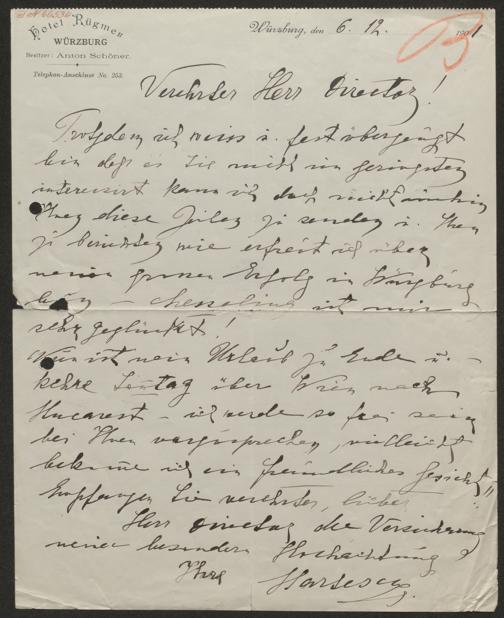 Hotel Rügmer
WÜRZBURG
Besitzer: Anton Schöner.
Telephon-Anschluss No. 253.
Würzburg, den 6. 12. 1901
Verehrter Herr Director!
Trotzdem ich weiss u. fest überzeugt
bin dass es Sie nicht im geringsten
interessirt kann ich doch nicht umhin
Ihnen diese Zeilen zu senden u. Ihnen
zu berichten wie erfreut ich über
meinen grossen Erfolg in Würzburg
bin – ist mir
sehr geglückt!
Nun ist mein Urlaub zu Ende u. –
kehre über Wien nach
Bucarest – ich werde so frei sein
bei Ihnen vorzusprechen, vielleicht
bekomme ich ein freundliches Gesicht!!
Empfangen Sie verehrter, lieber
Herr Director die Versicherung
meiner besonderen Hochachtung
Ihre